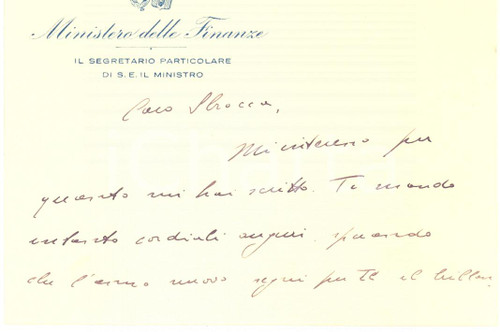 Ministero delle Finanze
IL SEGRETARIO PARTICOLARE
DI S. E. IL MINISTRO
Caro Sbrocca,
Mi interesso per
quanto mi hai scritto. Ti mando
intanto cordiali auguri, sperando
che l'anno nuovo segni per te il